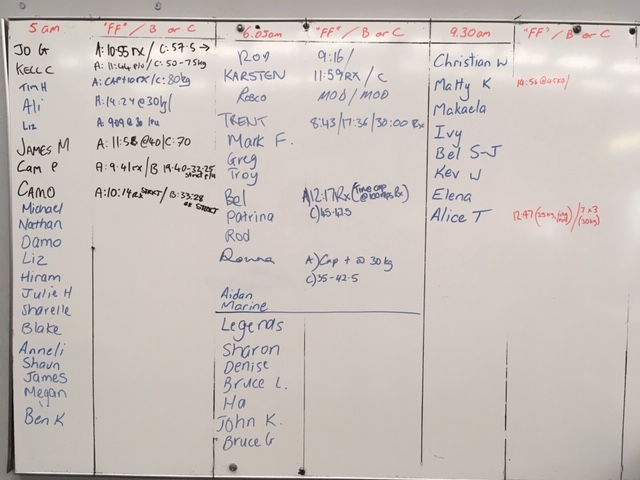 5 am "FF" / B or C
JO G A: 10:55 rx / C: 57.5 →
KELL C / C: 50-75kg
TIM H A: CAP+10 rx / C: 80kg
Ali A: 14:27 @ 30kg /
Liz
JAMES M A: 11:58 @40 / C: 70
Cam P A: 9:41 rx / B 19:40-33:25
CAMO A: 10:14 rx / B: 33:28
Michael
Nathan
Damo
Liz
Hiram
Julie H
Sharelle
Blake
Anneli
Shaun
James
Megan
Ben K
6.05am "FF" / B or C
Rod 9:16 /
KARSTEN 11:59 RX / C
Rosco MOD / MOD
TRENT 8:43 / 17:36 / 30:00 Rx
Mark F.
Greg
Troy
Bel A) 12:17 Rx (Time cap @ 100 reps Rx)
Patrina C) 45-47.5
Rod
Donna A) Cap + @ 30 kg
C) 35-42.5
Aidan
Marine
Legends
Sharon
Denise
Bruce L.
Ha
John K.
Bruce G
9.30am "FF" / B or C
Christian W
Matty K
Makaela
Ivy
Bel S-J
Kev W
Elena
Alice T